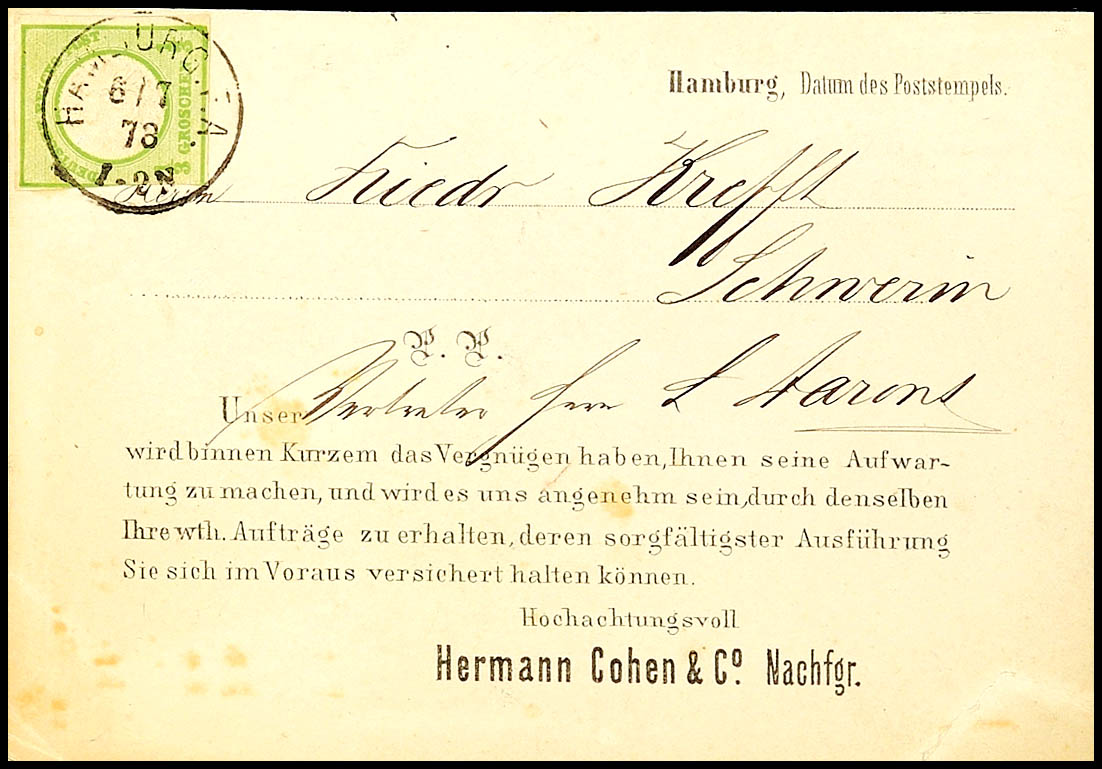 HAMBURG. I.A.
6/7
73
1-2N
DEUTSCHE REICHS-POST
GROSCHEN
Hamburg, Datum des Poststempels.
Herrn Friedr Krefft
Schwerin
P. P.
Unser Vertreter Herr L Aarons
wird binnen Kurzem das Vergnügen haben, Ihnen seine Aufwar-
tung zu machen, und wird es uns angenehm sein, durch denselben
Ihre wth. Aufträge zu erhalten, deren sorgfältigster Ausführung
Sie sich im Voraus versichert halten können.
Hochachtungsvoll
Hermann Cohen & Co. Nachfgr.